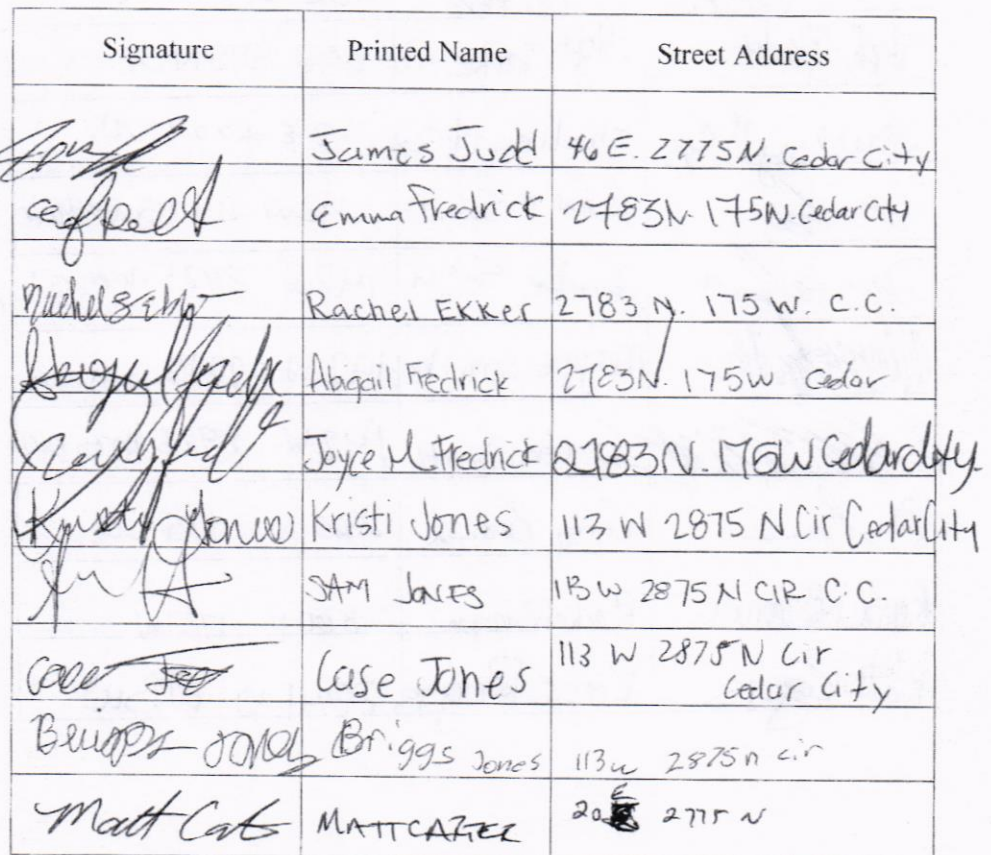 Signature Printed Name Street Address
James Judd 46 E. 2775 N. Cedar City
Emma Fredrick 2783 N. 175 W. Cedar City
Rachel Ekker 2783 N. 175 W. C.C.
Abigail Fredrick 2783 N. 175 W Cedar
Joyce M. Fredrick 2783 N. 175 W Cedar City
Kristi Jones Kristi Jones 113 W 2875 N Cir Cedar City
SAM JONES 113 W 2875 N CIR C.C.
Case Jones 113 W 2875 N Cir
Cedar City
Briggs Jones Briggs Jones 113 w 2875 n cir
Matt 20 E 2775 N